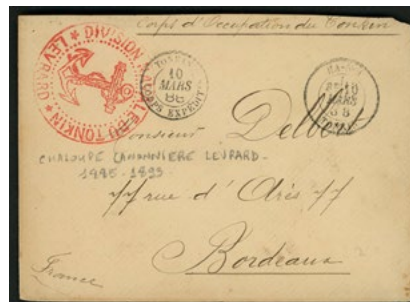 Corps d'Occupation du Tonkin
DIVISION NAVALE DU TONKIN
★ LEVRARD ★
TONKIN
10
MARS
88
CORPS EXPÉDIT
MARS
88
TONKIN
Monsieur Delbert
CHALOUPE CANONNIERE LEVRARD -
1885-1893
77 rue d'Arès 77
Bordeaux
France